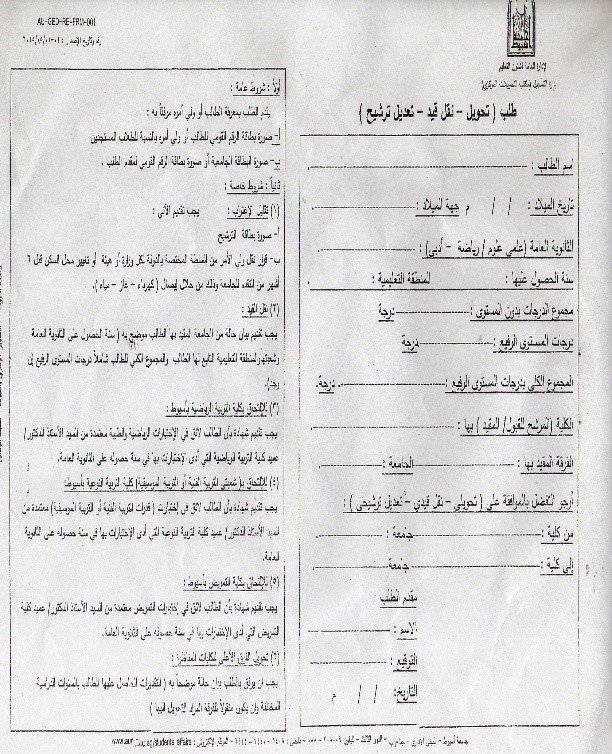 AU-GED-RE-FRM-001
الإدارة العامة لشئون التعليم
طلب ( تحويل – نقل قيد – تعديل ترشيح )
اسم الطالب :
تاريخ الميلاد : / / م جهة الميلاد :
الثانوية العامة (علمي علوم / رياضة – أدبي) :
سنة الحصول عليها : المنطقة التعليمية :
مجموع الدرجات بدون المستوى : درجة
درجات المستوى الرفيع : درجة
المجموع الكلي بدرجات المستوى الرفيع : درجة.
الكلية (المرشح للقبول/ المقيد ) بها :
الفرقة المقيد بها : الجامعة :
أرجو التفضل بالموافقة على ( تحويلي – نقل قيدي – تعديل ترشيحي ) :
من كلية : جامعة :
إلى كلية : جامعة
مقدم الطلب
الاسم :
التوقيع :
التاريخ: / / م
أولاً : شروط عامة :
يقدم الطلب بمعرفة الطالب أو ولي أمره مرفقاً به :
أ- صورة بطاقة الرقم القومي للطالب أو ولي أمره بالنسبة للطلاب المستجدين
ب- صورة البطاقة الجامعية أو صورة بطاقة الرقم القومي لمقدم الطلب .
ثانياً : شروط خاصة :
(١) تقليل الإغتراب : يجب تقديم الأتي :
أ- صورة بطاقة الترشيح
ب- قرار نقل ولي الأمر من السلطة المختصة بالدولة بكل وزارة أو هيئة أو تغيير محل السكن قبل ٦
أشهر من التقدم للجامعة وذلك من خلال إيصال ( كهرباء – غاز – مياه ).
(٢) نقل القيد :
يجب تقديم بيان حالة من الجامعة المقيد بها الطالب موضح به ( سنة الحصول على الثانوية العامة
وشعبتها والمنطقة التعليمية التابع لها الطالب والمجموع الكلي للطالب شاملاً درجات المستوى الرفيع إن
وجد).
(٣) للإلتحاق بكلية التربية الرياضية بأسيوط :
يجب تقديم شهادة بأن الطالب لائق في الإختبارات الرياضية والطبية معتمدة من السيد الأستاذ الدكتور/
عميد كلية التربية الرياضية التي أدى الإختبارات بها في سنة حصوله على الثانوية العامة.
(٤) للإلتحاق بـ( شعبتي التربية الفنية أو التربية الموسيقية) كلية التربية النوعية بأسيوط:
يجب تقديم شهادة بأن الطالب لائق في إختبارات ( قدرات التربية الفنية أو التربية الموسيقية) معتمدة من
السيد الأستاذ الدكتور/ عميد كلية التربية النوعية التي أدى الإختبارات بها في سنة حصوله على الثانوية
العامة.
(٥) للإلتحاق بكلية التمريض بأسيوط :
يجب تقديم شهادة بأن الطالب لائق في إختبارات التمريض معتمدة من السيد الأستاذ الدكتور/ عميد كلية
التمريض التي أدى الإختبارات بها في سنة حصوله على الثانوية العامة.
(٦) تحويل الفرق الأعلى للكليات المناظرة :
يجب أن يرفق بالطلب بيان حالة موضحاً به ( التقديرات الحاصل عليها الطالب بالسنوات الدراسية
المختلفة وأن يكون منقولاً للفرقة المراد التحويل إليها )
جامعة أسيوط – المبنى الإداري – الدور الثالث – تليفون